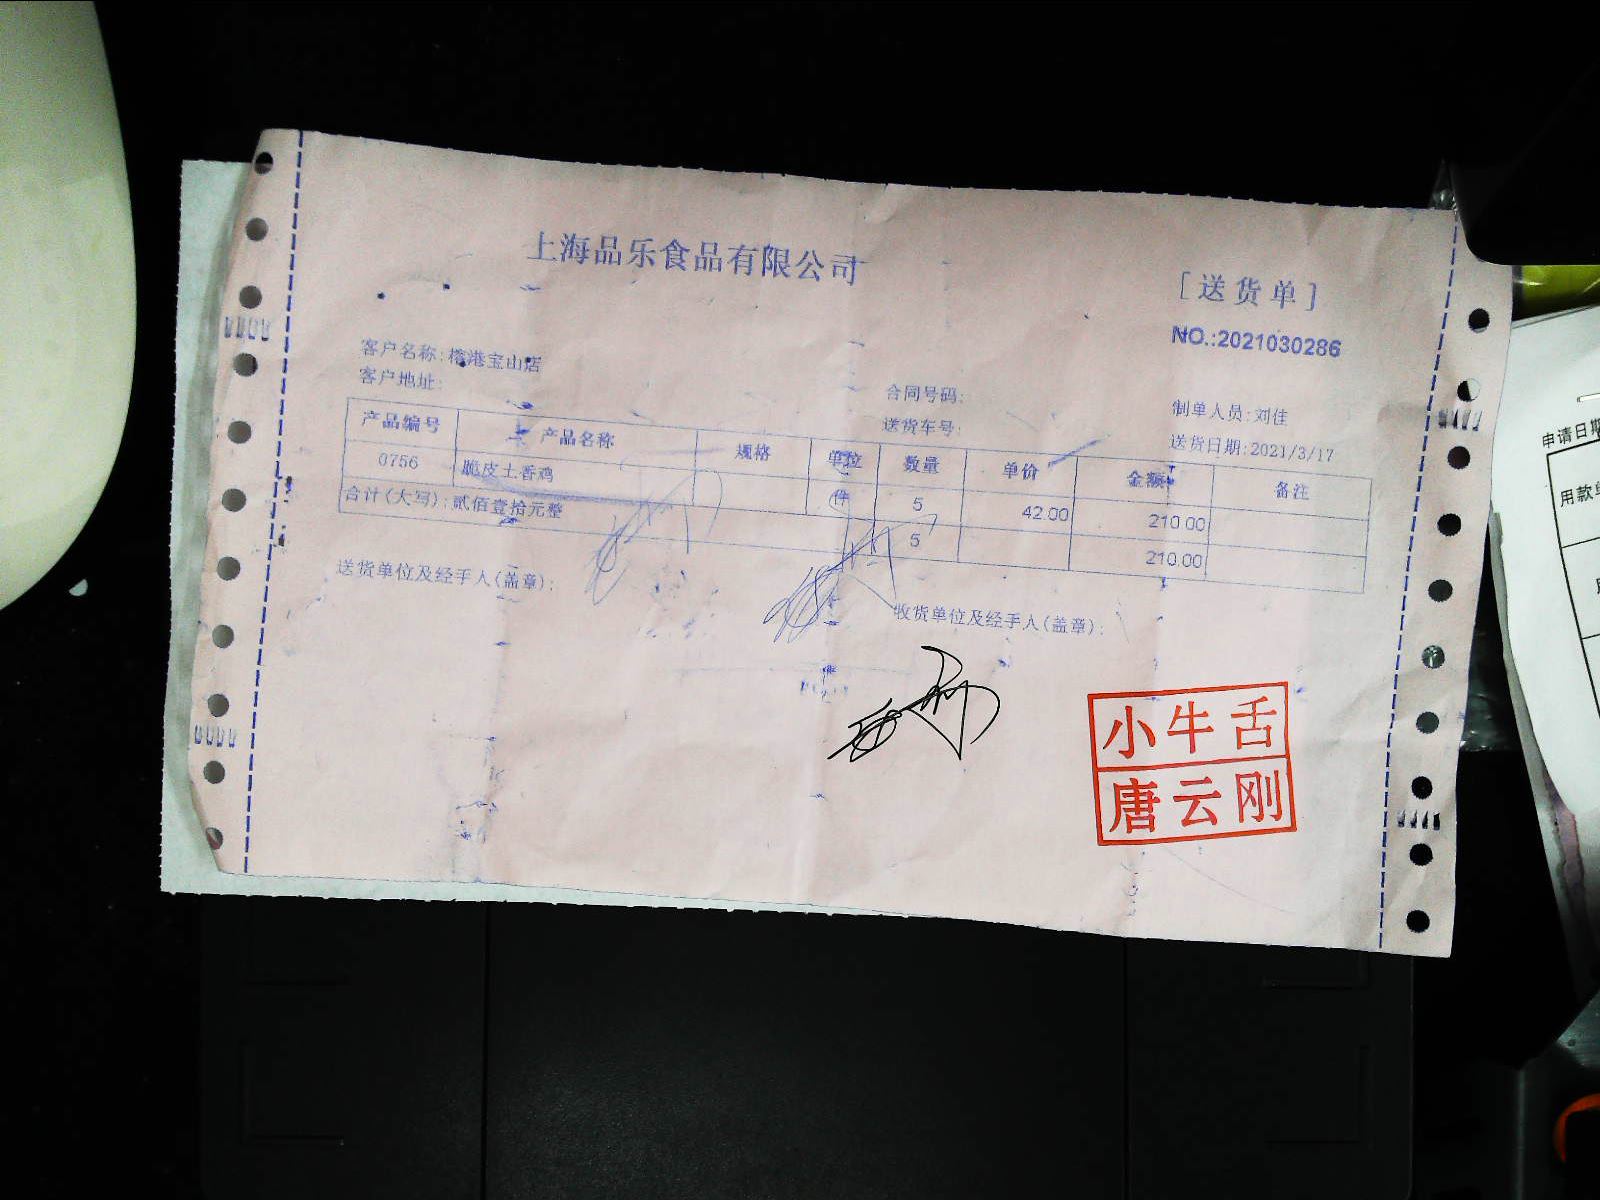 上海品乐食品有限公司
[送货单]
NO.:2021030286
客户名称:榕港宝山店
客户地址:
合同号码:
制单人员:刘佳
送货车号:
送货日期:2021/3/17
产品编号 产品名称 规格 单位 数量 单价 金额 备注
0756 脆皮土香鸡 件 5 42.00 210.00
合计(大写):贰佰壹拾元整 5 210.00
送货单位及经手人(盖章):
收货单位及经手人(盖章):
小牛舌
唐云刚
申请日期
用款单